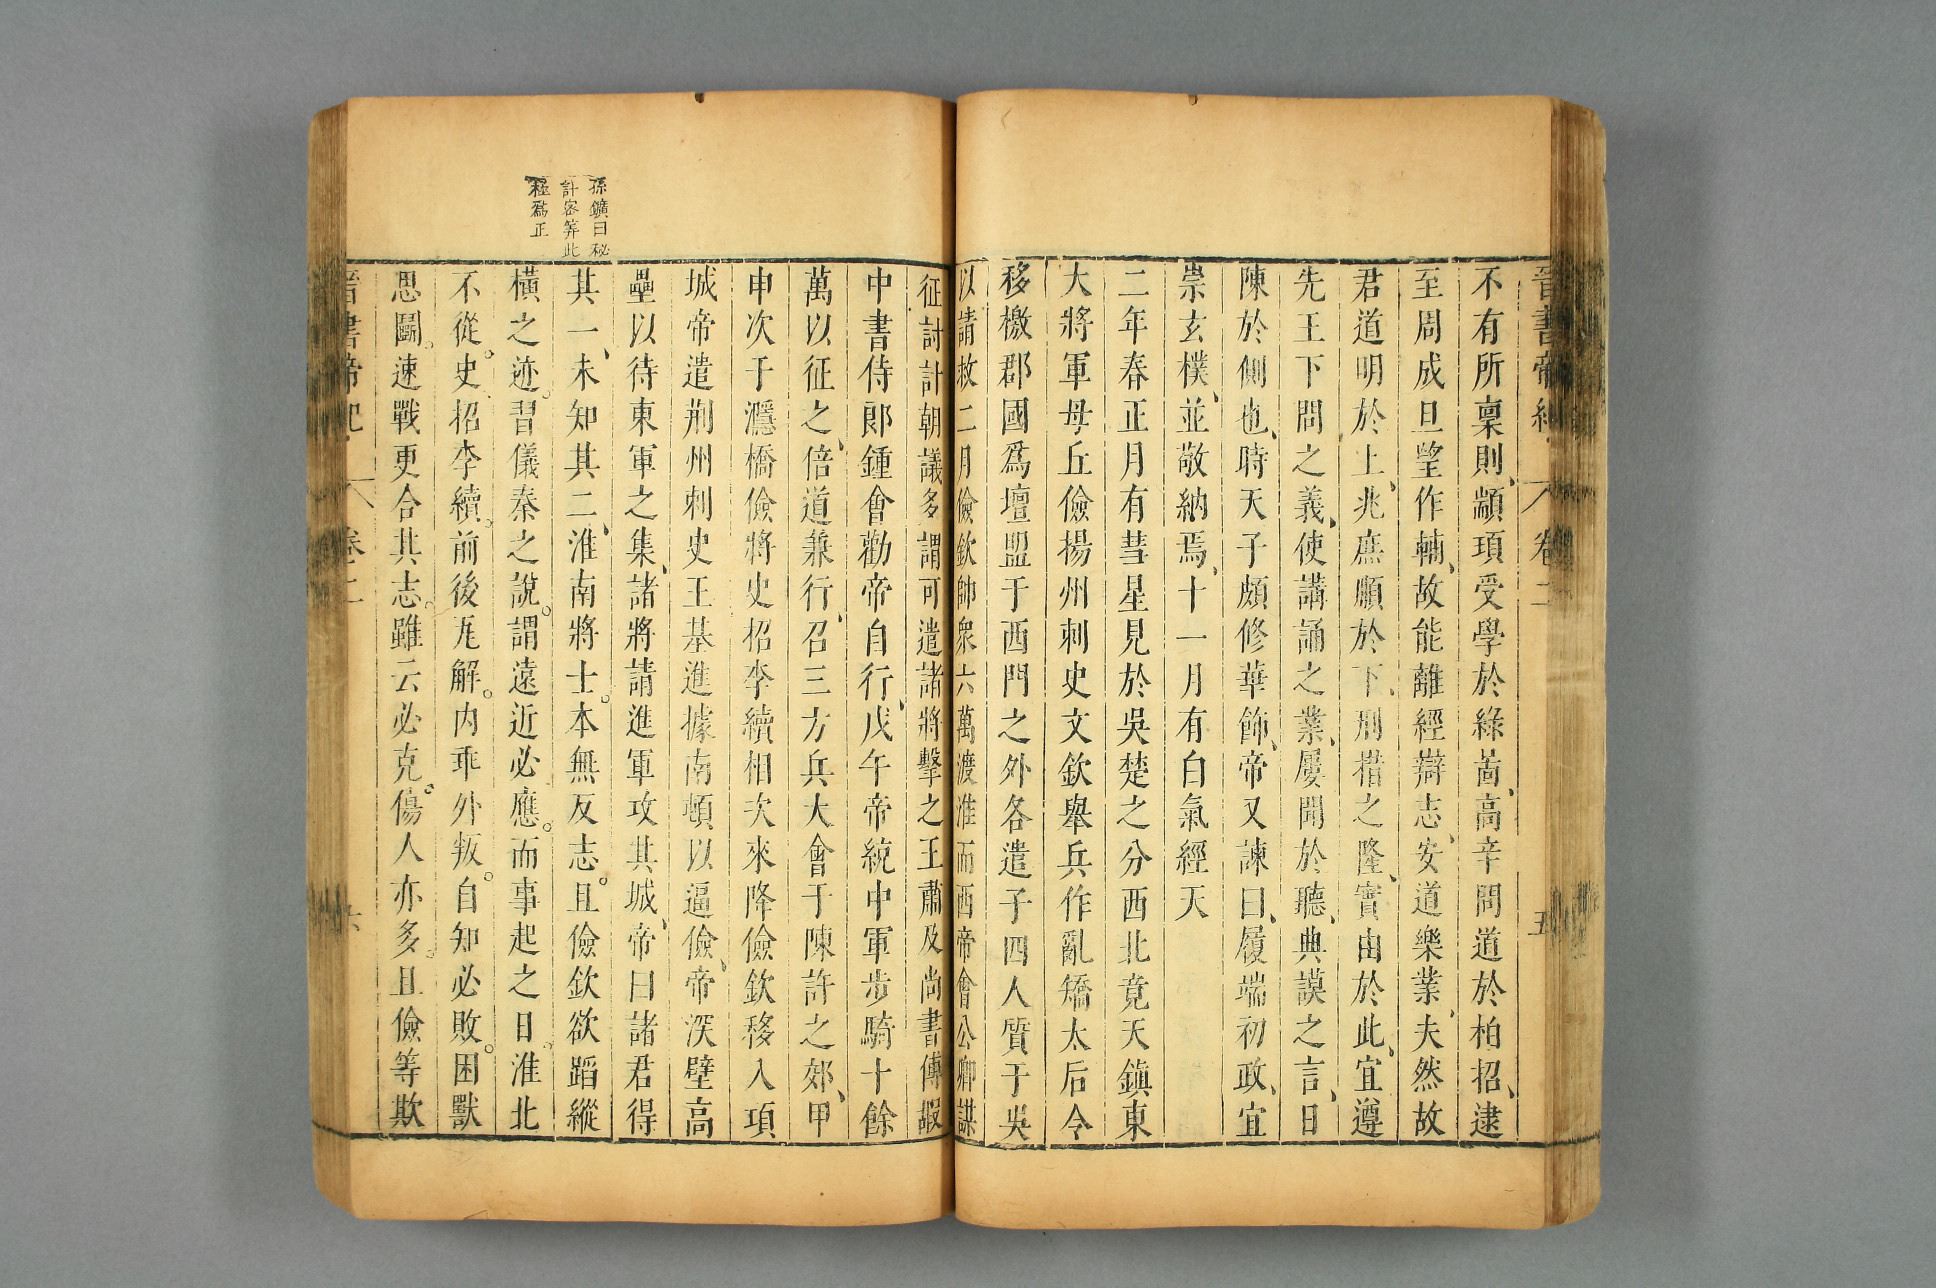 晉書帝紀 卷二 五
不有所稟則顓頊受學於綠啚高辛問道於柏招逮
至周成旦望作輔故能離經辯志安道樂業夫然故
君道明於上兆庶順於下刑措之隆實由於此宜遵
先王下問之義使講誦之業屢聞於聽典謨之言日
陳於側也時天子頗修華飾帝又諫曰履端初政宜
崇玄樸並敬納焉十一月有白氣經天
二年春正月有彗星見於吳楚之分西北竟天鎮東
大將軍毋丘儉揚州刺史文欽舉兵作亂矯太后令
移檄郡國爲壇盟于西門之外各遣子四人質于吳
以請救二月儉欽帥衆六萬渡淮而西帝會公卿謀
征討計朝議多謂可遣諸將擊之王肅及尚書傅嘏
中書侍郎鍾會勸帝自行戊午帝統中軍步騎十餘
萬以征之倍道兼行召三方兵大會于陳許之郊甲
申次于濦橋儉將史招李續相次來降儉欽移入項
城帝遣荆州刺史王基進據南頓以逼儉帝深壁高
壘以待東軍之集諸將請進軍攻其城帝曰諸君得
其一未知其二淮南將士本無反志且儉欽欲蹈縱
橫之迹習儀秦之說謂遠近必應而事起之日淮北
不從史招李續前後瓦解内乖外叛自知必敗困獸
思鬭速戰更合其志雖云必克傷人亦多且儉等欺
晉書帝紀 卷二 六
孫鑛曰秘
計密筭此
極爲正